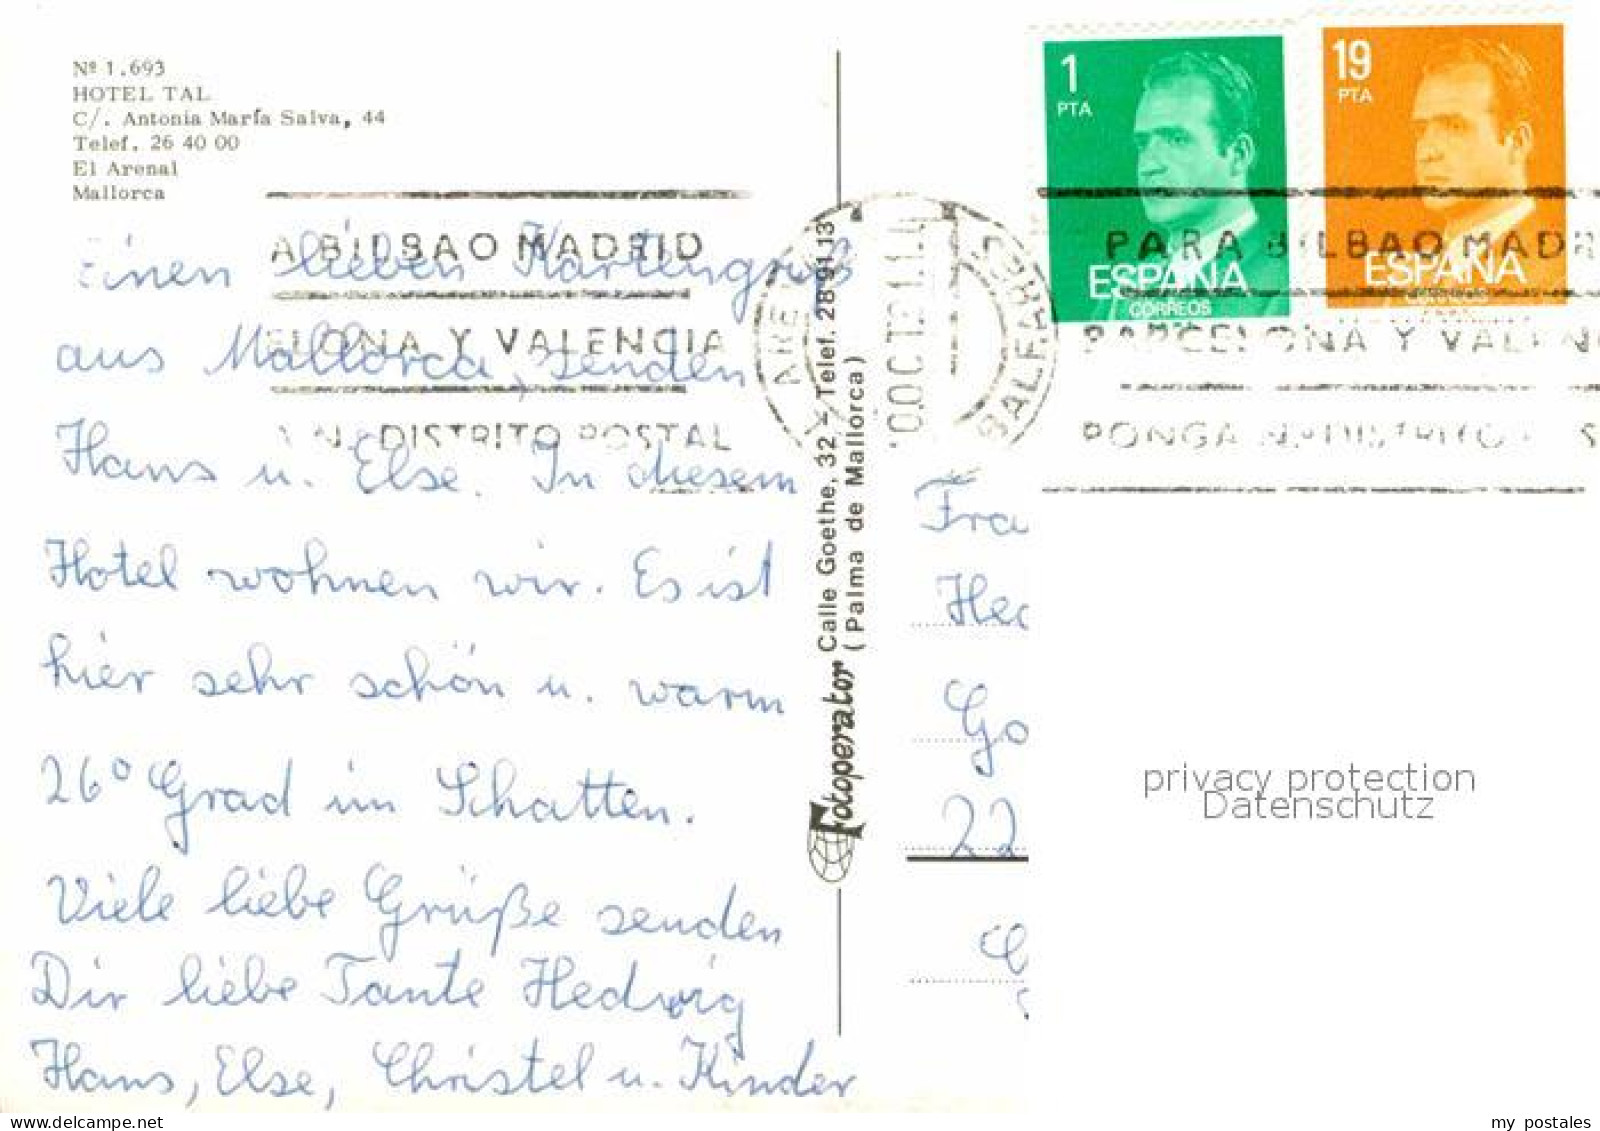 Nº 1.693
HOTEL TAL
C/. Antonia María Salva, 44
Telef. 26 40 00
El Arenal
Mallorca
Einen lieben Kartengruß
aus Mallorca, senden
Hans u. Else. In diesem
Hotel wohnen wir. Es ist
hier sehr schön u. warm
26° Grad im Schatten.
Viele liebe Grüße senden
Dir liebe Tante Hedwig
Hans, Else, Christel u. Kinder
A BILBAO MADRID
ELONA Y VALENCIA
DISTRITO POSTAL
Fotoperator Calle Goethe, 32 - Telef. 28 91 13
(Palma de Mallorca)
1
PTA
ESPAÑA
CORREOS
19
PTA
ESPAÑA
CORREOS
PARA BILBAO MADR
BARCELONA Y VALEN
PONGA Nº DISTRITO
Fra
Hed
Go
22
privacy protection
Datenschutz
my postales